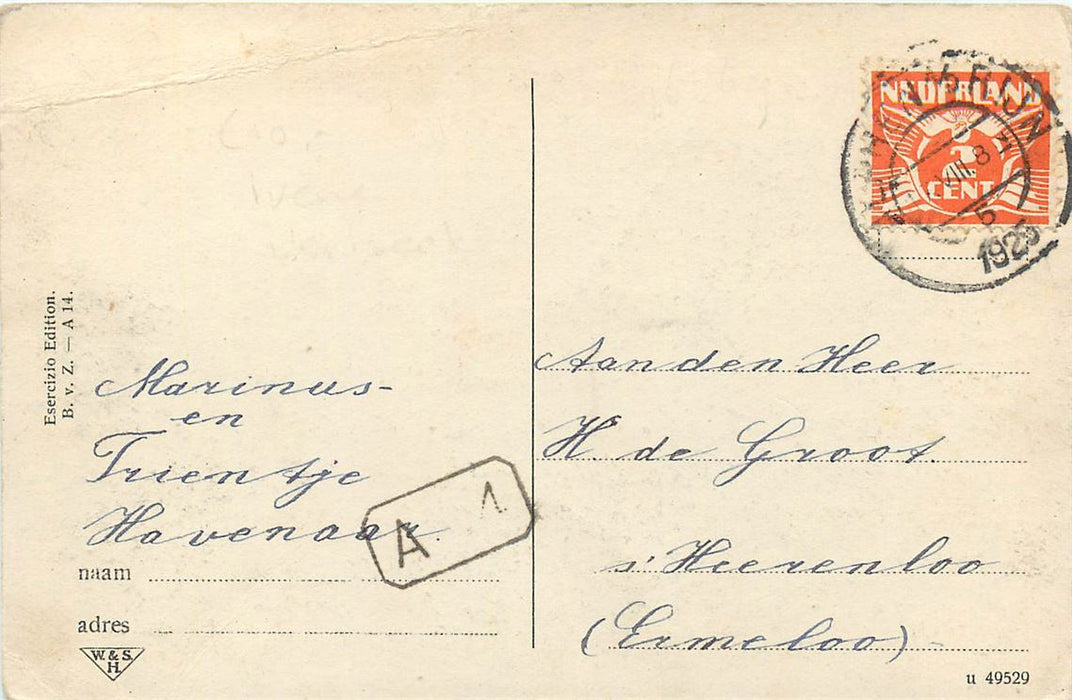 Esercizio Edition.
B. v. Z. — A 14.
Marinus-
en
Trientje
Havenaar.
A 1
naam
adres
W. & S.
H.
NEDERLAND
2
CENT
VIII. 8
5
1925
Aan den Heer
H. de Groot.
s' Heerenloo
(Ermeloo)
u 49529